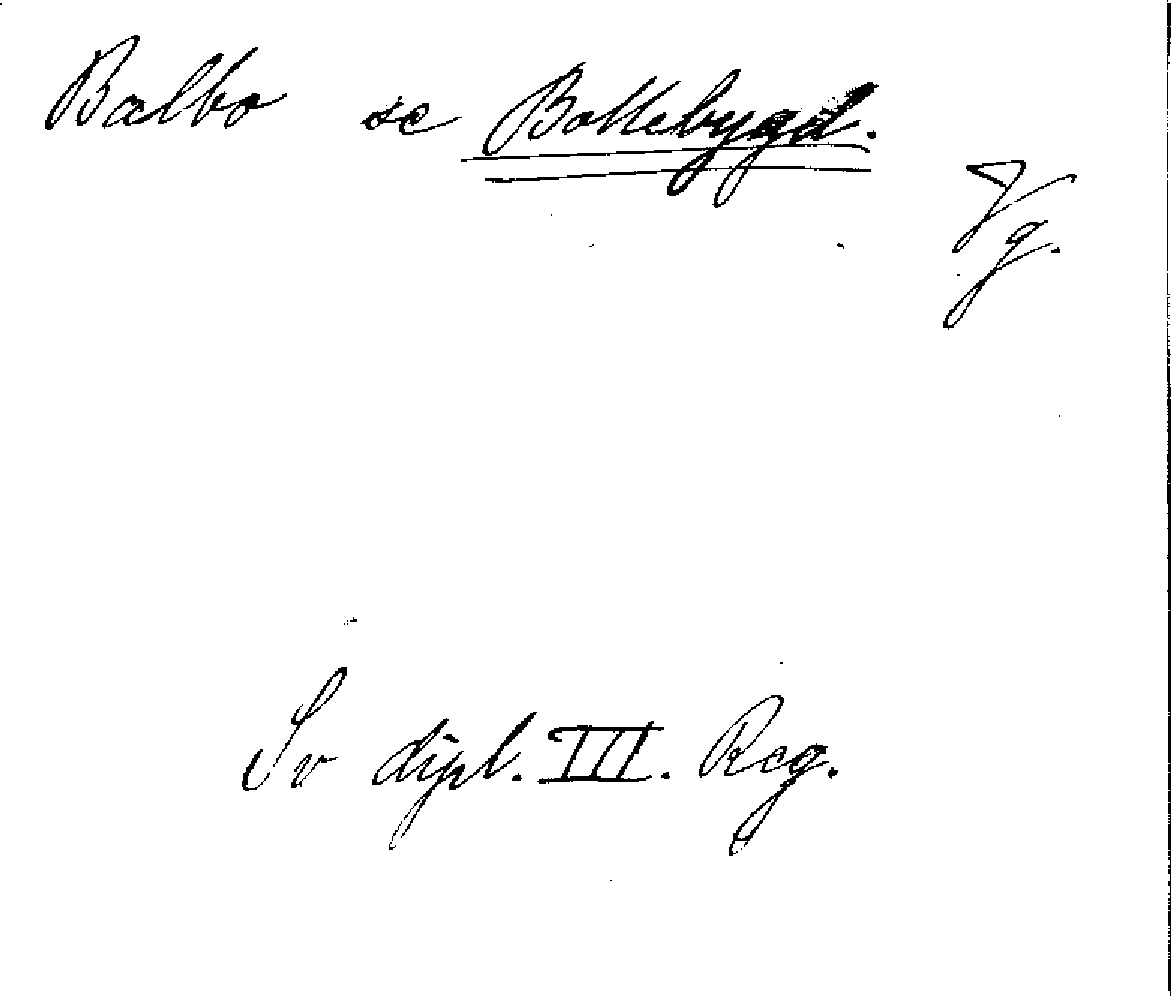 Bælbo se Bollebygd.
Vg.
Sv dipl. III. Reg.